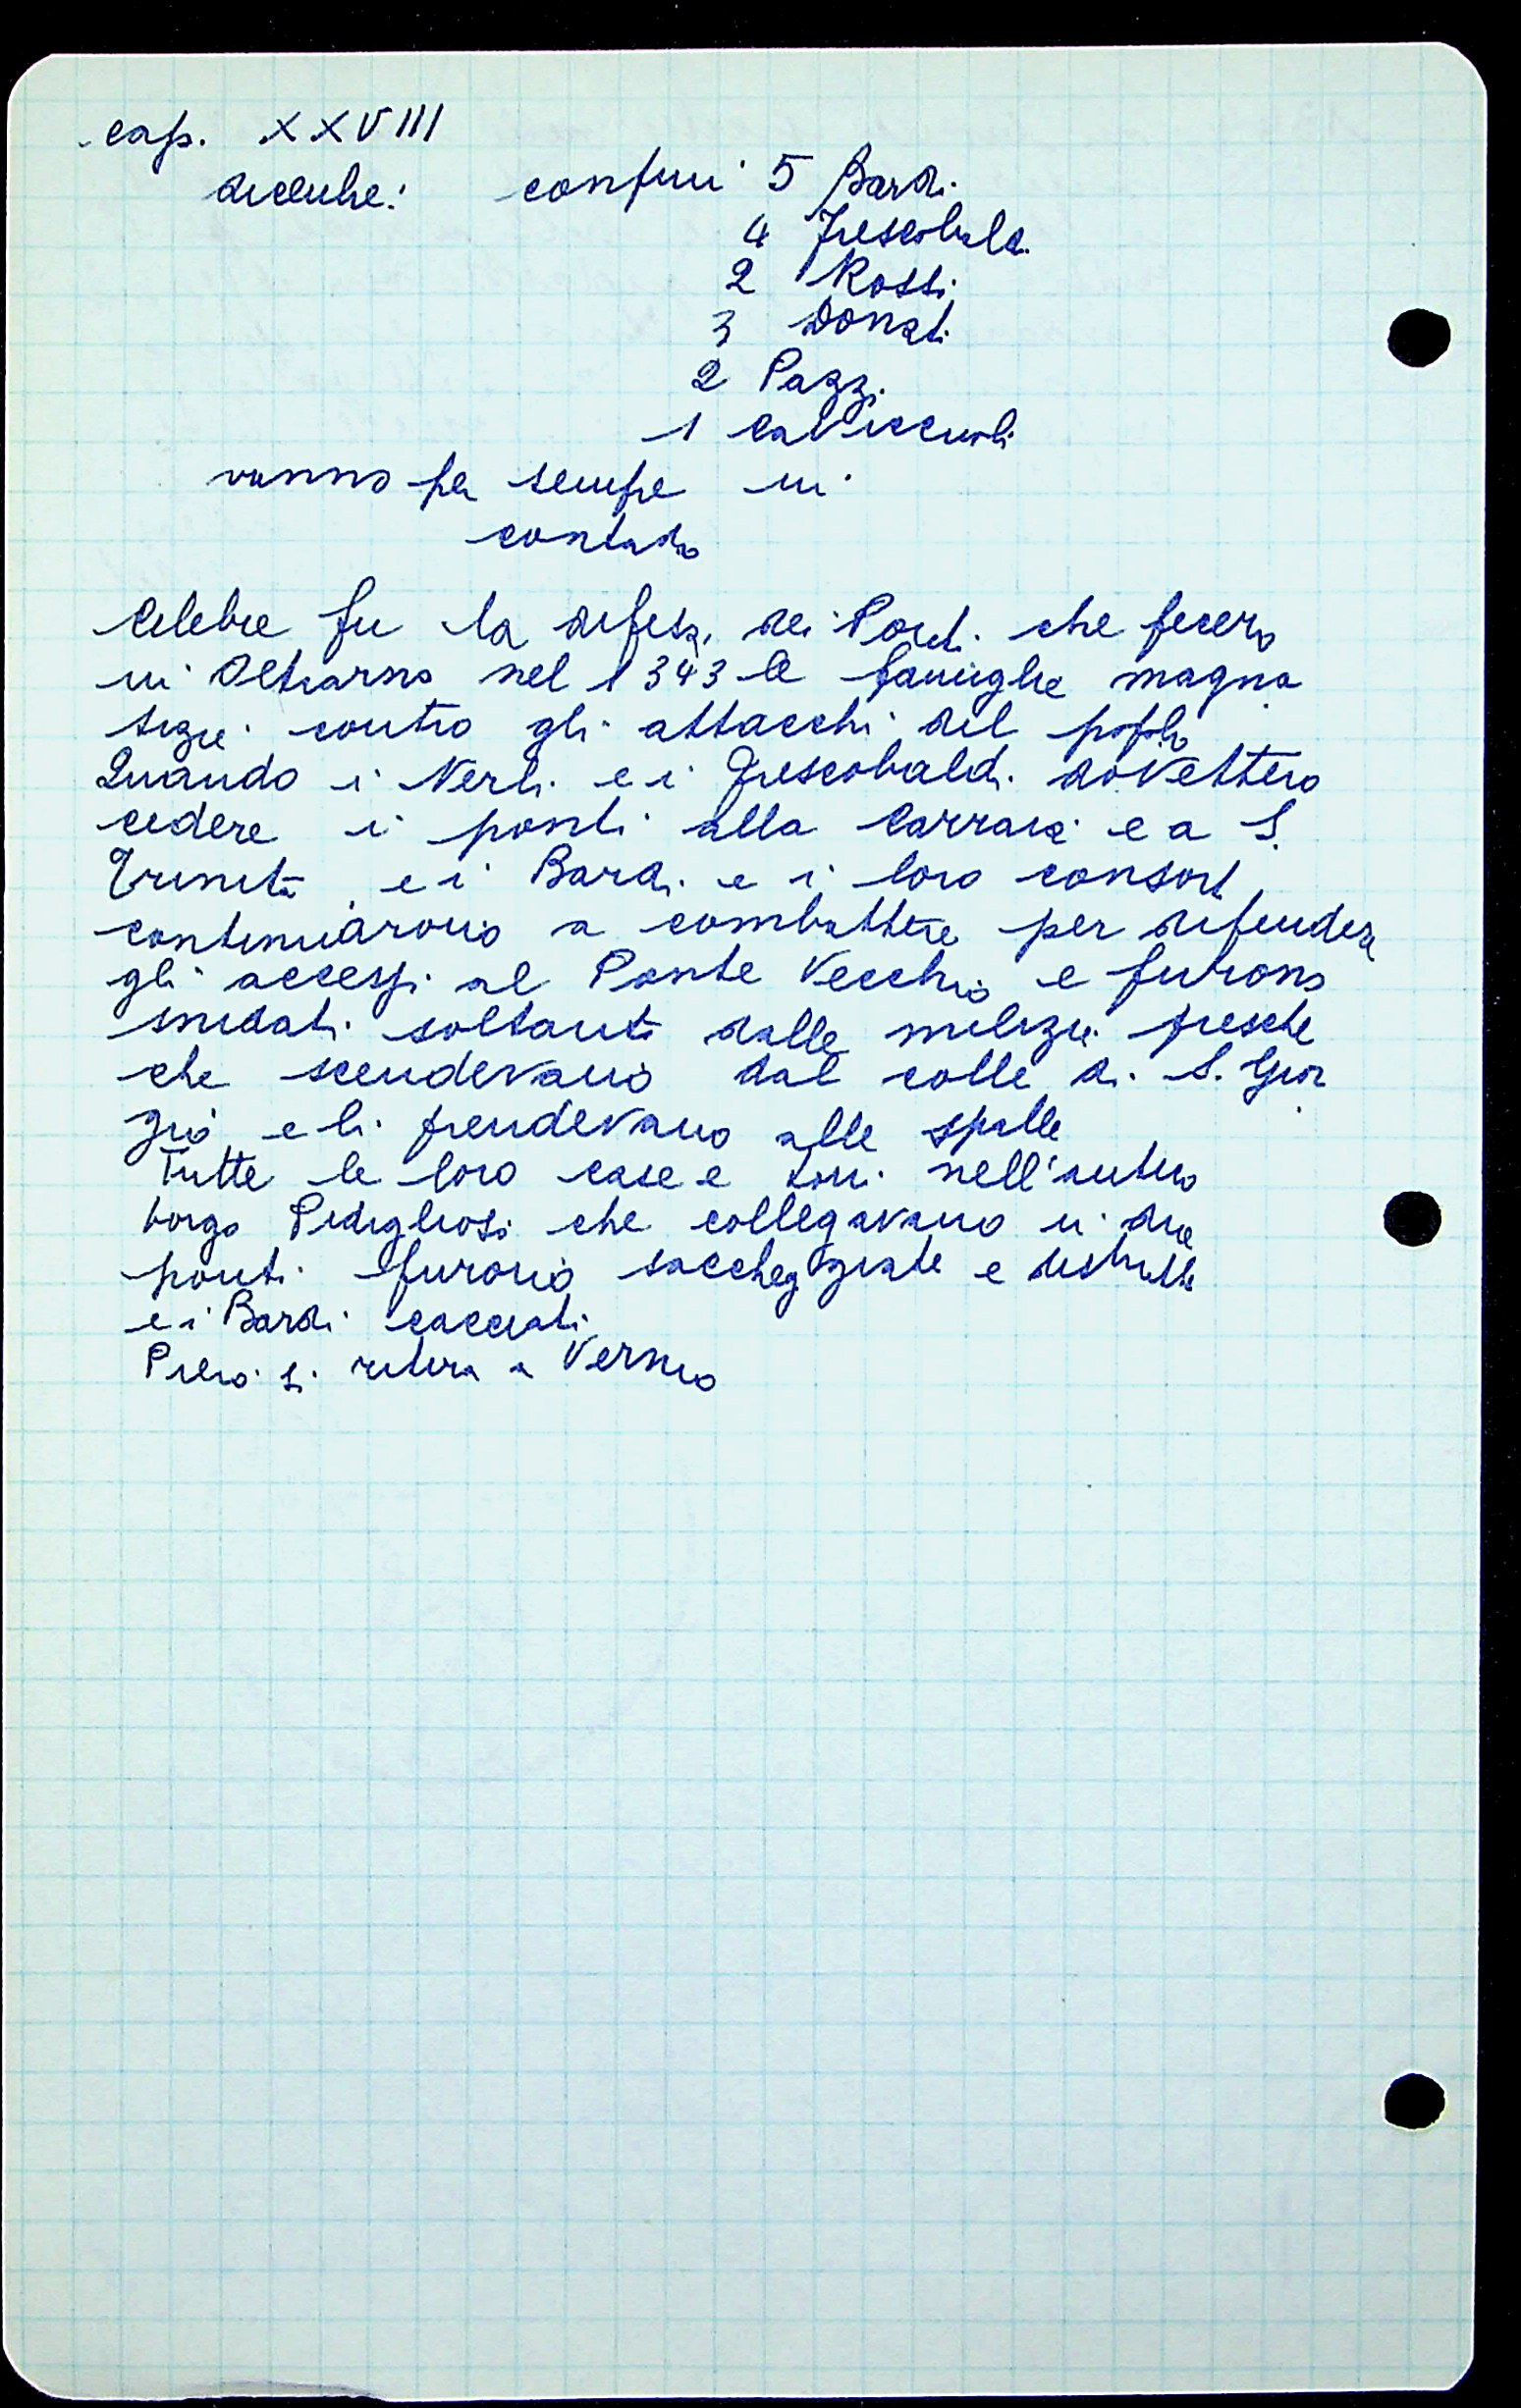 cap. XXVIII
dicembre: confini 5 Bardi
4 Frescobaldi
2 Rossi
3 Donati
2 Pazzi
1 Cavicciuoli
vanno per sempre in
contado
Celebre fu la difesa dei Ponti che fecero
in Oltrarno nel 1343 le famiglie magna
tizie contro gli attacchi del popolo
Quando i Nerli e i Frescobaldi dovettero
cedere i ponti alla Carraia e a S.
Trinita e i Bardi e i loro consorti
continuarono a combattere per difendere
gli accessi al Ponte Vecchio e furono
snidati soltanto dalle milizie fresche
che scendevano dal colle di S. Gior
gio e li prendevano alle spalle
Tutte le loro case e torri nell'antico
borgo Pidiglioso che collegavano i due
ponti furono saccheggiate e distrutte
e i Bardi cacciati
Piero si ritira a Vernio